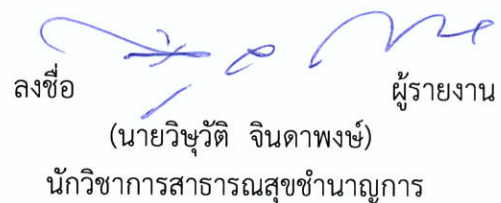 ลงชื่อ ผู้รายงาน
(นายวิษุวัติ จินดาพงษ์)
นักวิชาการสาธารณสุขชำนาญการ